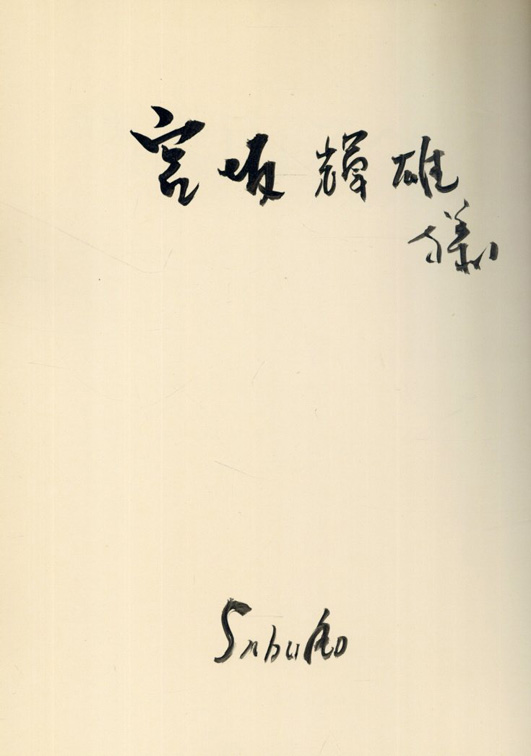 宮坂輝雄
様
Saburo